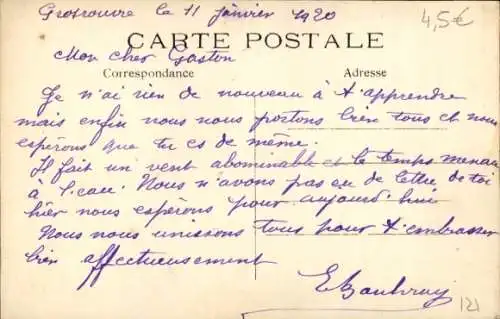 Grosrouvre le 11 janvier 1920
4,5€
CARTE POSTALE
Mon cher Gaston
Correspondance
Adresse
Je n'ai rien de nouveau à t'apprendre
mais enfin nous nous portons bien tous et nous
espérons que tu es de même.
Il fait un vent abominable et le temps menace
à l'eau. Nous n'avons pas eu de lettre de toi
hier nous espérons pour aujourd'hui
Nous nous unissons tous pour t'embrasser
bien affectueusement
121